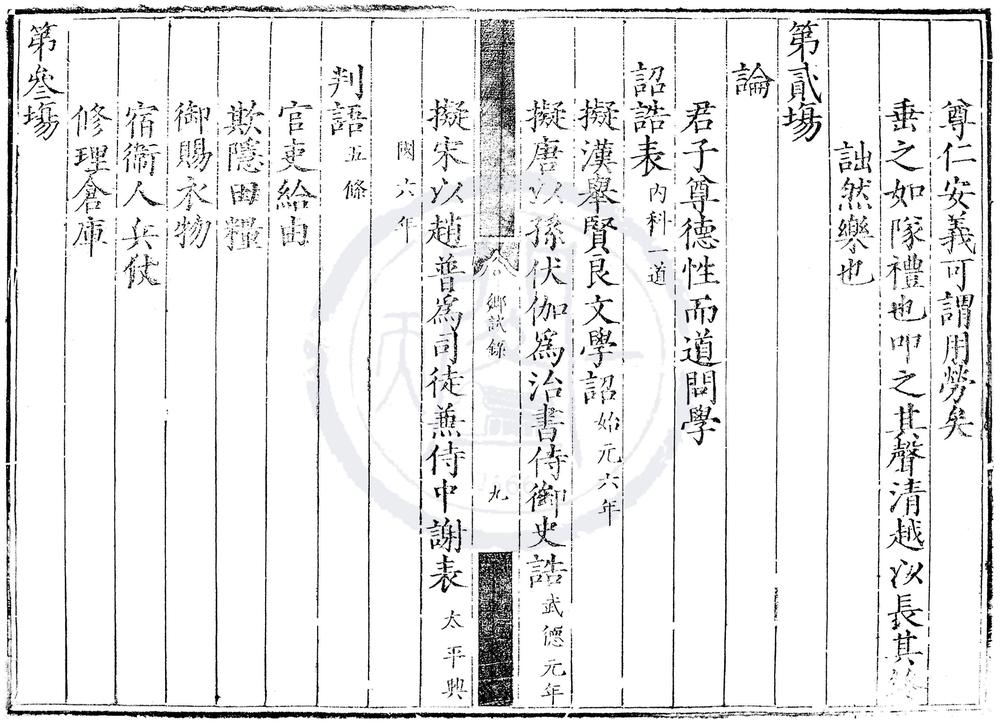 尊仁安義可謂用勞矣
垂之如隊禮也叩之其聲清越以長其終
詘然樂也
第貳場
論
君子尊德性而道問學
詔誥表内科一道
擬漢舉賢良文學詔始元六年
擬唐以孫伏伽爲治書侍御史誥武德元年
鄉試錄
九
擬宋以趙普爲司徒兼侍中謝表太平興
國六年
判語五條
官吏給由
欺隱田糧
御賜衣物
宿衞人兵仗
修理倉庫
第叄場